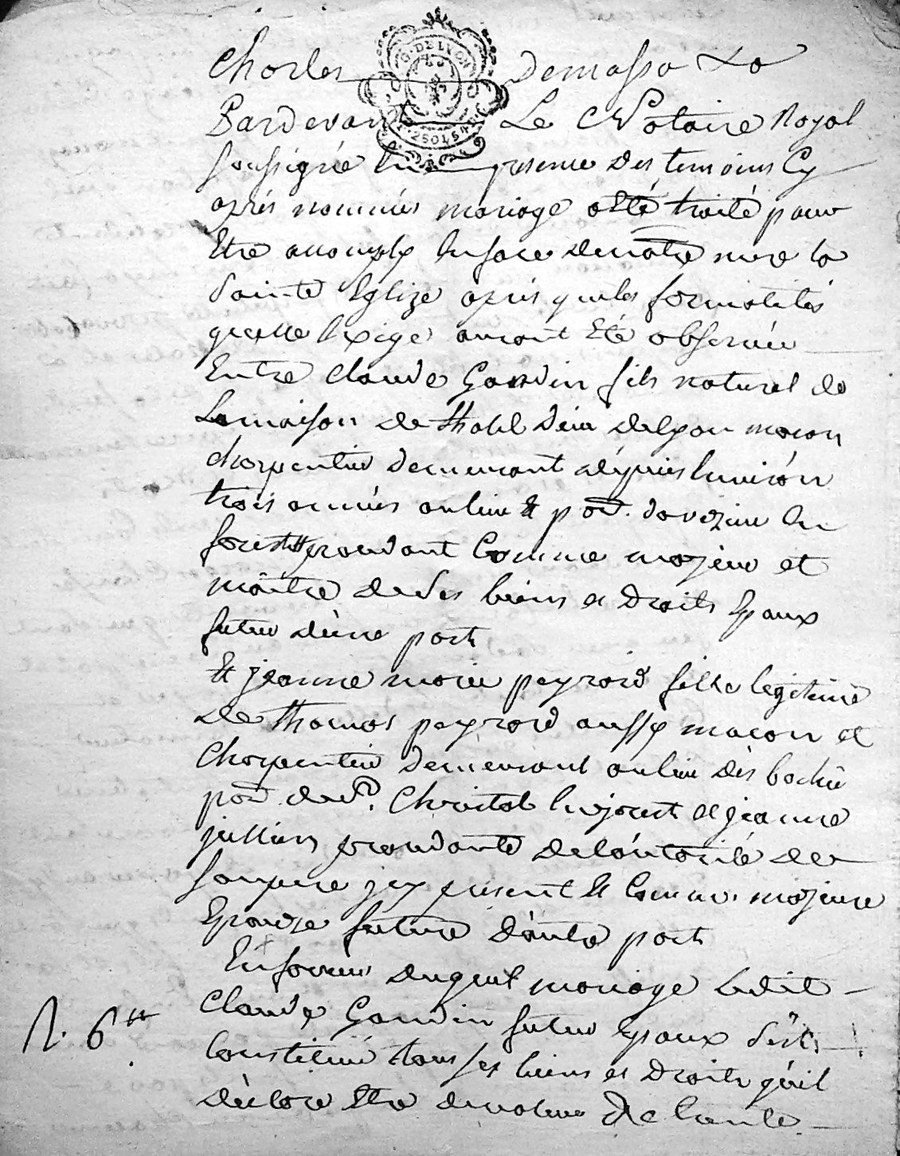 Charles Demasso La
G. DE LYON
Pardevant Le Notaire Royal
soussigné En presence Des temoins Cy
aprés nommés mariage a Eté traité pour
Etre accomply En face de notre mere la
Sainte Eglize aprés que les formalités
quelle Exige auront Eté observée
Entre Claude Gandin fils naturel de
La maison de Lhotel Dieu de Lyon macon
charpentier demeurant depuis Environ
trois années au lieu & par. davezieu En
forest procedant Comme majeur et
maitre de Ses biens et Droits Epoux
futur dune part
& jeanne marie peyrard fille legitime
De thomas peyrard aussy macon et
Charpentier demeurant au lieu des
par. de St. Christol et jeanne
jullien procedante de Lautorité de
son pere jcy présent & Comme majeure
Epouze future dautre part
En faveur duquel mariage Ledit
Claude Gandin futur Epoux Sest
Constitué tous ses biens et Droits quil
declare Etre de valeur de trente
R. 6tt